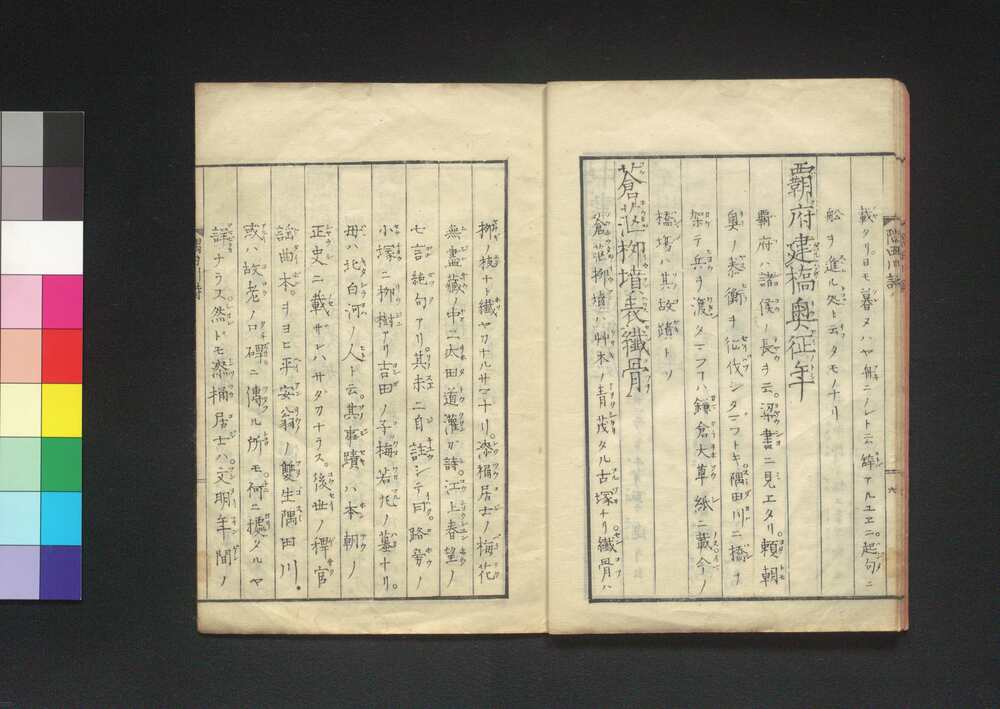 載タリ。日モ暮ヌハヤ舟ニノレト云辞アルユヱニ。起句ニ
船ヲ進ル処ト云タモノナリ
覇府建橋奥征年
覇府ハ諸侯ノ長ヲ云。梁書ニ見エタリ。頼朝
奥ノ泰衡ヲ征伐シタマフトキ隅田川ニ橋ヲ
架テ兵ヲ渡タマフヿハ鎌倉大草紙ニ載。今ノ
橋場ハ其故蹟トソ
蒼茫柳墳表纖骨
蒼茫柳墳ハ艸木ノ青茂タル古塚ナリ纖骨ハ
六
柳ノ枝ナト纖ヤカナルサマナリ。漆桶居士ノ梅花
無盡藏ノ中ニ太田道灌カ詩。江上春望ノ
七言絶句アリ其末ニ自註シテ曰。路旁ノ
小塚ニ柳樹アリ吉田ノ子梅若丸ノ墓ナリ。
母ハ北白河ノ人ト云。其事蹟ハ本朝ノ
正史ニ載サレハサダカナラス。後世ノ稗官
謡曲本。ヲヨヒ平安翁ノ雙生隅田川。
或ハ故老ノ口碑ニ傳ル所モ。何ニ據タルヤ
詳ナラス。然ドモ漆桶居士ハ。文明年間ノ